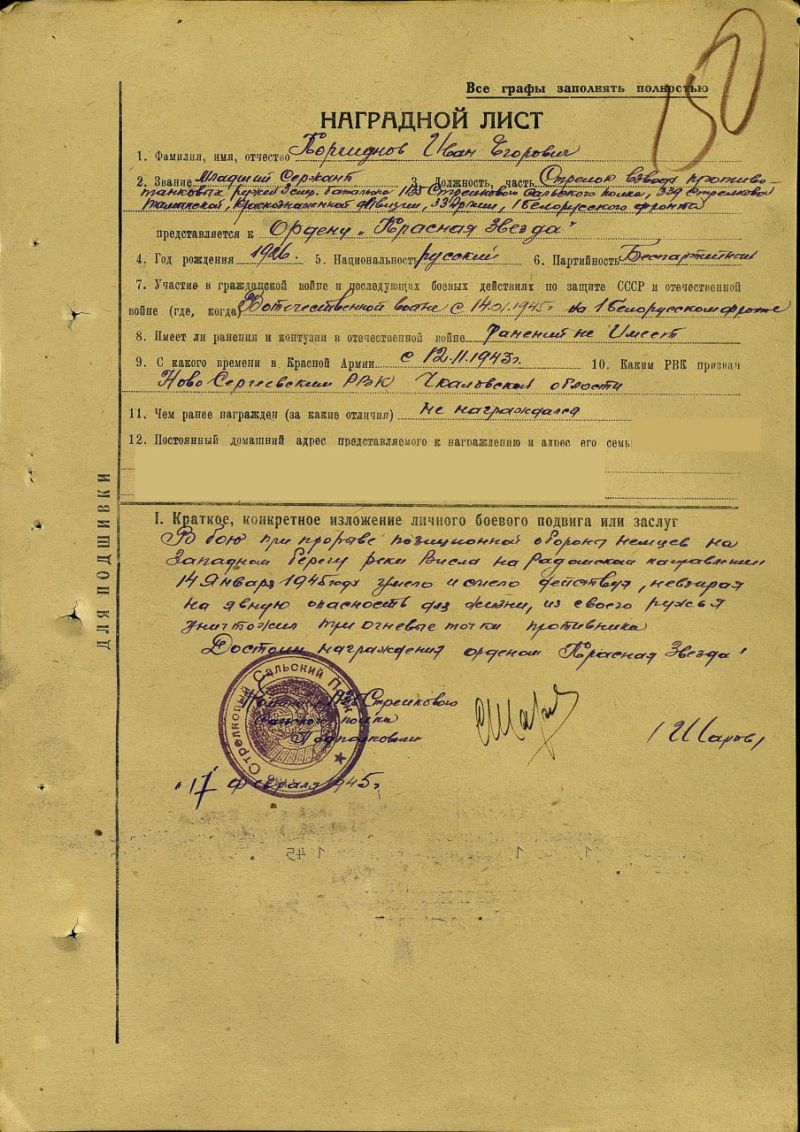 150
Все графы заполнять полностью
НАГРАДНОЙ ЛИСТ
1. Фамилия, имя, отчество Иван Егорович
2. Звание Младший Сержант 3. Должность, часть Стрелок взвода противо
танковых ружей 3 стр. батальона 1133 Стрелкового Сальского полка, 339 Стрелковой
Таманской, Краснознаменной Дивизии, 33 Армии, 1 Белорусского фронта
представляется к Ордену „Красная Звезда"
4. Год рождения 1926. 5. Национальность русский 6. Партийность Беспартийный
7. Участие в гражданской войне и последующих боевых действиях по защите СССР и отечественной
войне (где, когда) В отечественной войне с 14.01.1945г на 1 Белорусском фронте
8. Имеет ли ранения и контузии в отечественной войне Ранений не Имеет
9. С какого времени в Красной Армии с 12.11.1943г. 10. Каким РВК призван
Ново Сергиевским РВК Чкаловской области
11. Чем ранее награжден (за какие отличия) не награждался
12. Постоянный домашний адрес представляемого к награждению и адрес его семь
ДЛЯ ПОДШИВКИ
I. Краткое, конкретное изложение личного боевого подвига или заслуг
В бою при прорыве позиционной обороны немцев на
Западном берегу реки Висла на Радомском направлении
14 Января 1945 года умело и смело действуя, невзирая
на явную опасность для жизни, из своего ружья
уничтожил три огневые точки противника
Достоин награждения орденом „Красная Звезда"
Стрелкового
Сальского полка
Подполковник
/Шаров/
"17 февраля 1945г
Стрелковый Сальский